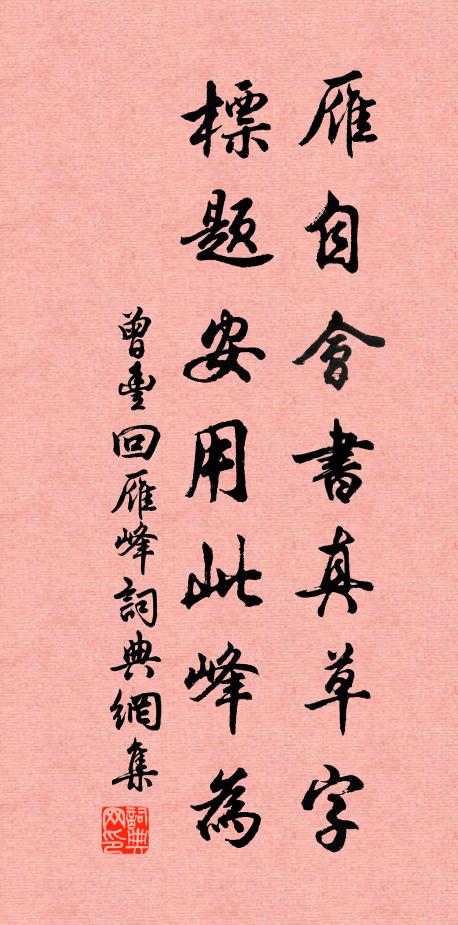 雁自會書真草字
標題安用此峰為
曾豐回雁峰詞典網集
詞典网印